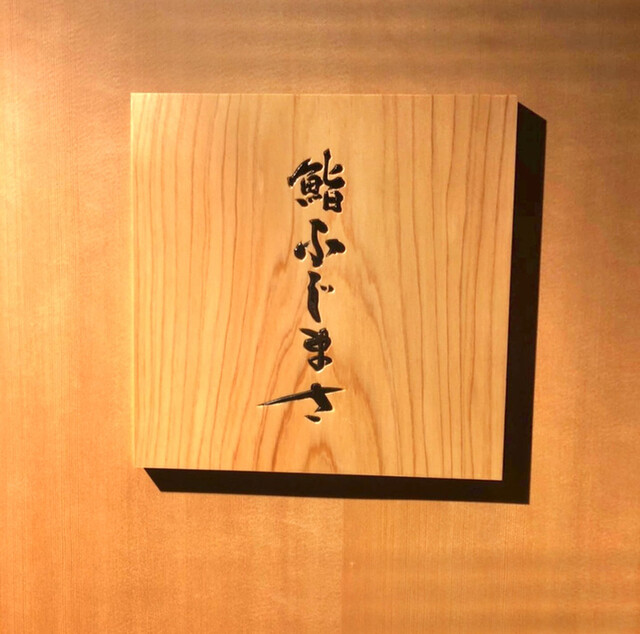 鮨ふじまさ